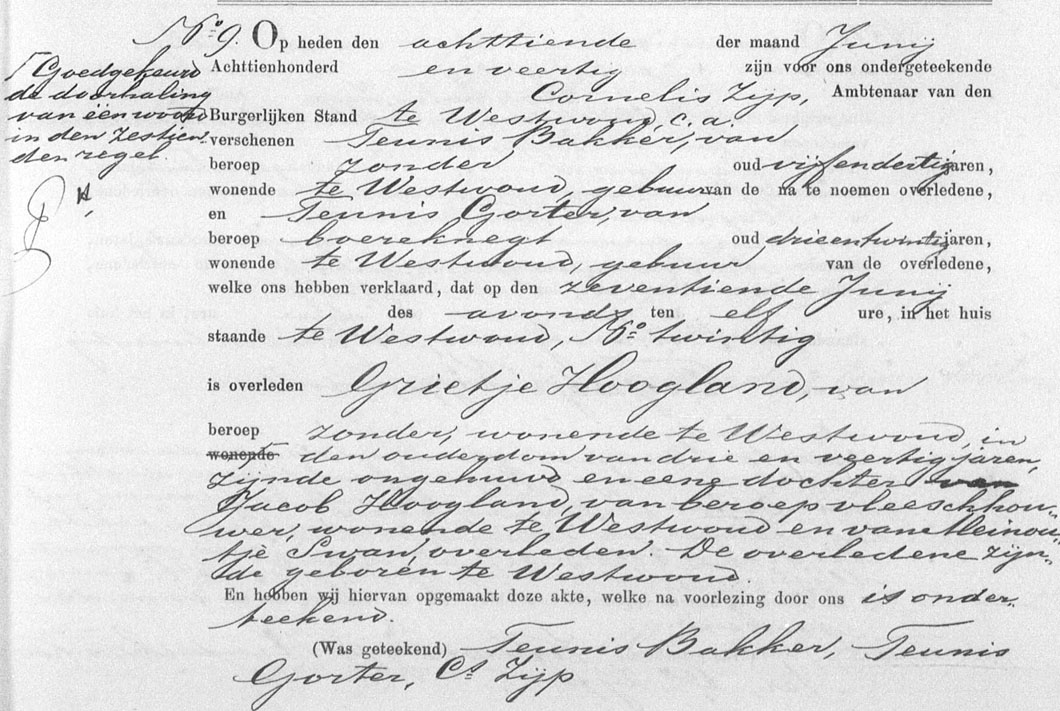 No. 9. Op heden den achttiende der maand Junij
Achttienhonderd en veertig zijn voor ons ondergeteekende
Cornelis Zijp, Ambtenaar van den
Burgerlijken Stand te Westwoud c.a.
verschenen Teunis Bakker, van
beroep zonder oud vijfendertig jaren,
wonende te Westwoud, gebuur van de na te noemen overledene,
en Teunis Gorter, van
beroep boereknegt oud drieentwintig jaren,
wonende te Westwoud, gebuur van de overledene,
welke ons hebben verklaard, dat op den zeventiende Junij
des avonds ten elf ure, in het huis
staande te Westwoud, No. twintig
is overleden Grietje Hoogland, van
beroep zonder, wonende te Westwoud, in
wonende den ouderdom van drie en veertig jaren,
zijnde ongehuwd en eene dochter van
Jacob Hoogland, van beroep vleeschhou-
wer, wonende te Westwoud en van Meinou-
tje Swan, overleden. De overledene zijn-
de geboren te Westwoud.
En hebben wij hiervan opgemaakt deze akte, welke na voorlezing door ons is onder-
teekend.
(Was geteekend) Teunis Bakker, Teunis
Gorter, Cs. Zijp
Goedgekeurd
de doorhaling
van één woord
in den zestien-
den regel.